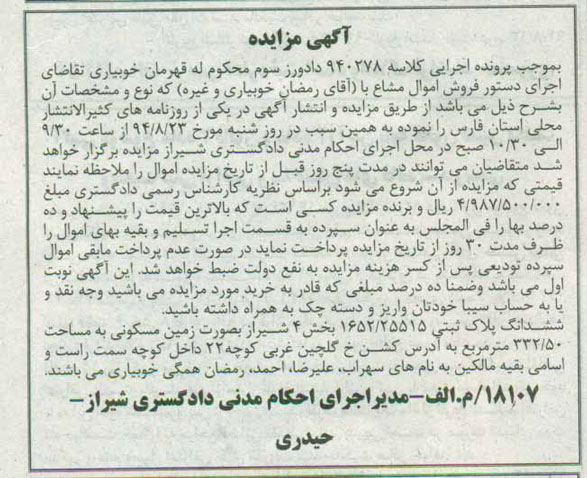 آگهی مزایده
بموجب پرونده اجرایی کلاسه ۹۴۰۲۷۸ دادورز سوم محکوم له قهرمان خوبیاری تقاضای
اجرای دستور فروش اموال مشاع با (آقای رمضان خوبیاری و غیره) که نوع و مشخصات آن
بشرح ذیل می باشد از طریق مزایده و انتشار آگهی در یکی از روزنامه های کثیرالانتشار
محلی استان فارس را نموده به همین سبب در روز شنبه مورخ ۹۴/۸/۲۳ از ساعت ۹/۳۰
الی ۱۰/۳۰ صبح در محل اجرای احکام مدنی دادگستری شیراز مزایده برگزار خواهد
شد متقاضیان می توانند در مدت پنج روز قبل از تاریخ مزایده اموال را ملاحظه نمایند
قیمتی که مزایده از آن شروع می شود براساس نظریه کارشناس رسمی دادگستری مبلغ
۴/۹۸۷/۵۰۰/۰۰۰ ریال و برنده مزایده کسی است که بالاترین قیمت را پیشنهاد و ده
درصد بها را فی المجلس به عنوان سپرده به قسمت اجرا تسلیم و بقیه بهای اموال را
ظرف مدت ۳۰ روز از تاریخ مزایده پرداخت نماید در صورت عدم پرداخت مابقی اموال
سپرده تودیعی پس از کسر هزینه مزایده به نفع دولت ضبط خواهد شد. این آگهی نوبت
اول می باشد وضمنا ده درصد مبلغی که قادر به خرید مورد مزایده می باشید وجه نقد و
یا به حساب سیبا خودتان واریز و دسته چک به همراه داشته باشید.
ششدانگ پلاک ثبتی ۱۶۵۲/۲۵۵۱۵ بخش۴ شیراز بصورت زمین مسکونی به مساحت
۳۳۲/۵۰ مترمربع به آدرس کشن خ گلچین غربی کوچه۲۲ داخل کوچه سمت راست و
اسامی بقیه مالکین به نام های سهراب، علیرضا، احمد، رمضان همگی خوبیاری می باشند.
۱۸۱۰۷/م.الف-مدیراجرای احکام مدنی دادگستری شیراز-
حیدری